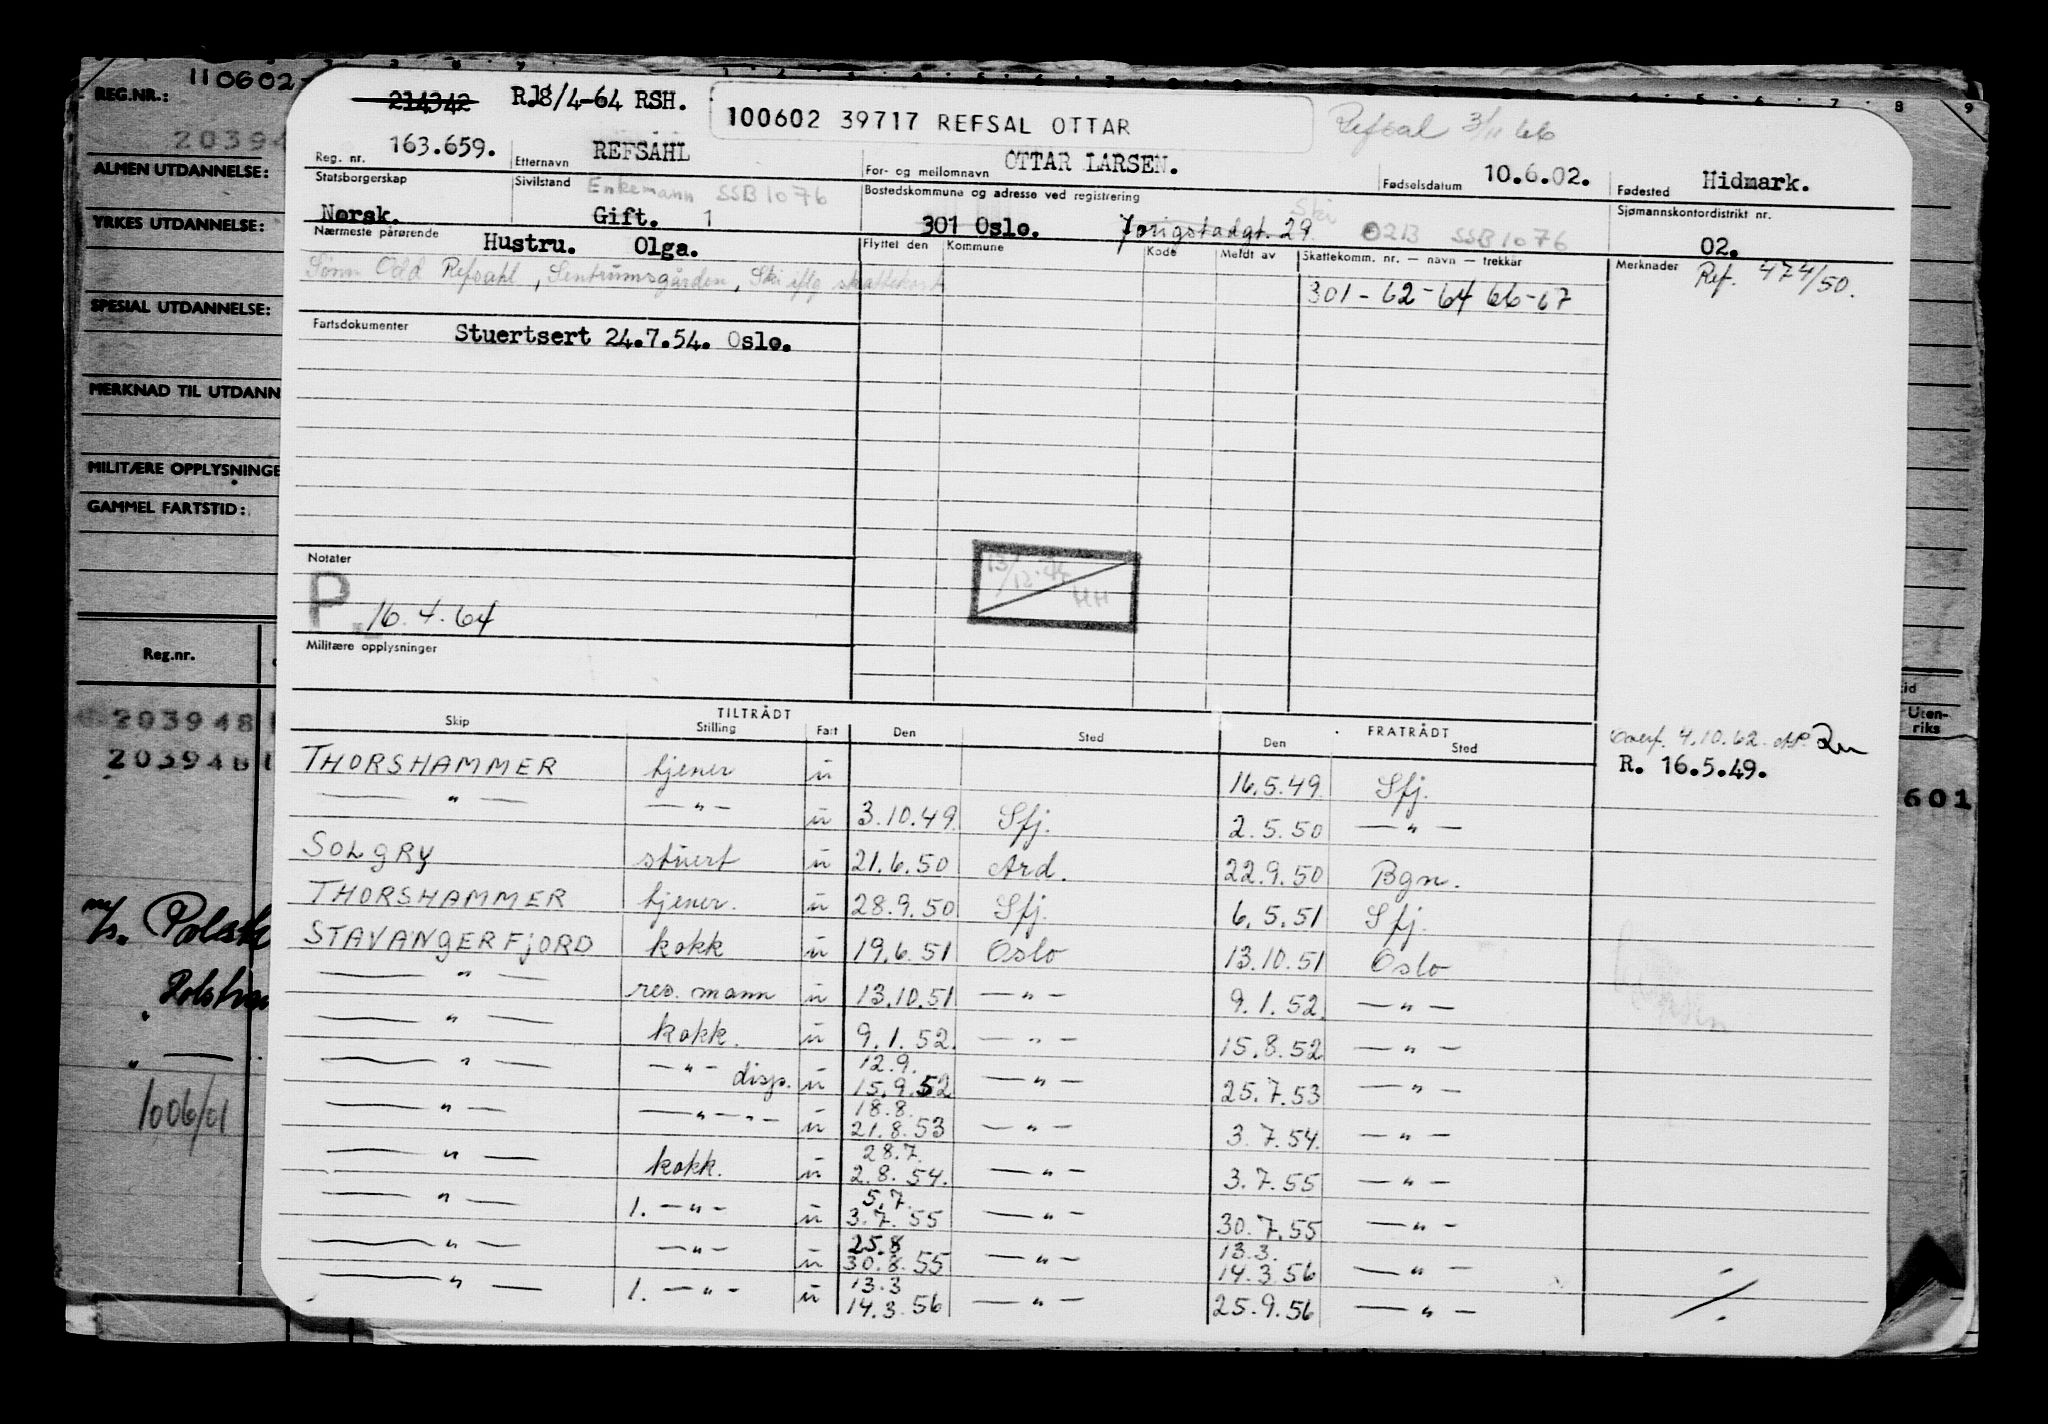 110602-
REG.NR.:
20394
ALMEN UTDANNELSE:
YRKES UTDANNELSE:
SPESIAL UTDANNELSE:
MERKNAD TIL UTDANN
MILITÆRE OPPLYSNINGE
GAMMEL FARTSTID:
Reg.nr.
203948
203948
m/s. Polsk
1006/01
214342 R18/4-64 RSH.
100602 39717 REFSAL OTTAR
Refsal 3/11 66
Reg. nr. 163.659.
Etternavn REFSAHL
For- og mellomnavn OTTAR LARSEN.
Fødselsdatum 10.6.02.
Fødested Hidmark.
Statsborgerskap Norsk.
Sivilstand Enkemann SSB 1076
Gift. 1
Bostedskommune og adresse ved registrering
301 Oslo. 29 Ski 0213 SSB 1076
Sjømannskontordistrikt nr.
02.
Nærmeste pårørende Hustru. Olga.
Sønn Odd Refsahl, Sentrumsgården, Ski iflg skattekort
Flyttet den Kommune Kode Meldt av Skattekomm. nr. — navn — trekkår
301 - 62-64 66-67
Merknader Ref. 474/50.
Fartsdokumenter Stuertsert 24.7.54. Oslo.
Notater
P. 16.4.64
HH
Militære opplysninger
TILTRÅDT FRATRÅDT
Skip Stilling Fart Den Sted Den Sted
4.10.62.
R. 16.5.49.
THORSHAMMER tjener u 16.5.49 Sfj.
— " — — " — u 3.10.49 Sfj. 2.5.50 — " —
SOLGRY stuert u 21.6.50 Ard. 22.9.50 Bgn.
THORSHAMMER tjener. u 28.9.50 Sfj. 6.5.51 Sfj.
STAVANGERFJORD kokk u 19.6.51 Oslo 13.10.51 Oslo
— " — res. mann u 13.10.51 — " — 9.1.52. — " —
— " — kokk. u 9.1.52. — " — 15.8.52 — " —
— " — — " — disp. u 12.9. 15.9.52 — " — 25.7.53 — " —
— " — — " — " — u 18.8. 21.8.53 — " — 3.7.54. — " —
— " — kokk. u 28.7. 2.8.54. — " — 3.7.55 — " —
— " — 1. — " — u 5.7. 3.7.55 — " — 30.7.55 — " —
— " — — " — u 25.8 30.8.55 — " — 13.3. 14.3.56 — " —
— " — 1. — " — u 13.3 14.3.56 — " — 25.9.56 — " —
Uten-
riks
601